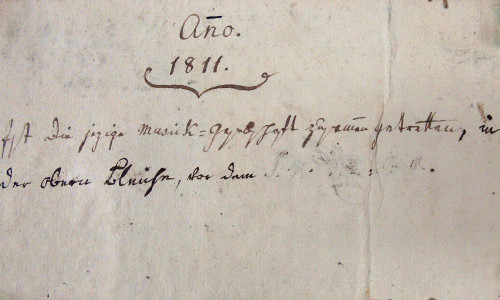 Año.
1811.
Ist die jezige Musick=Geselschaft zusammen getretten, in
der obern Bleiche, vor dem